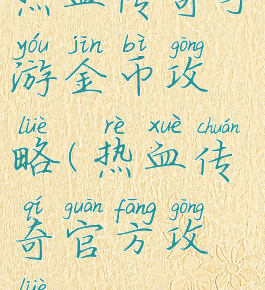 热血传奇手
yóu jīn bì gōng
游金币攻
lüè rè xuè chuán
略(热血传
qí guān fāng gōng
奇官方攻
lüè